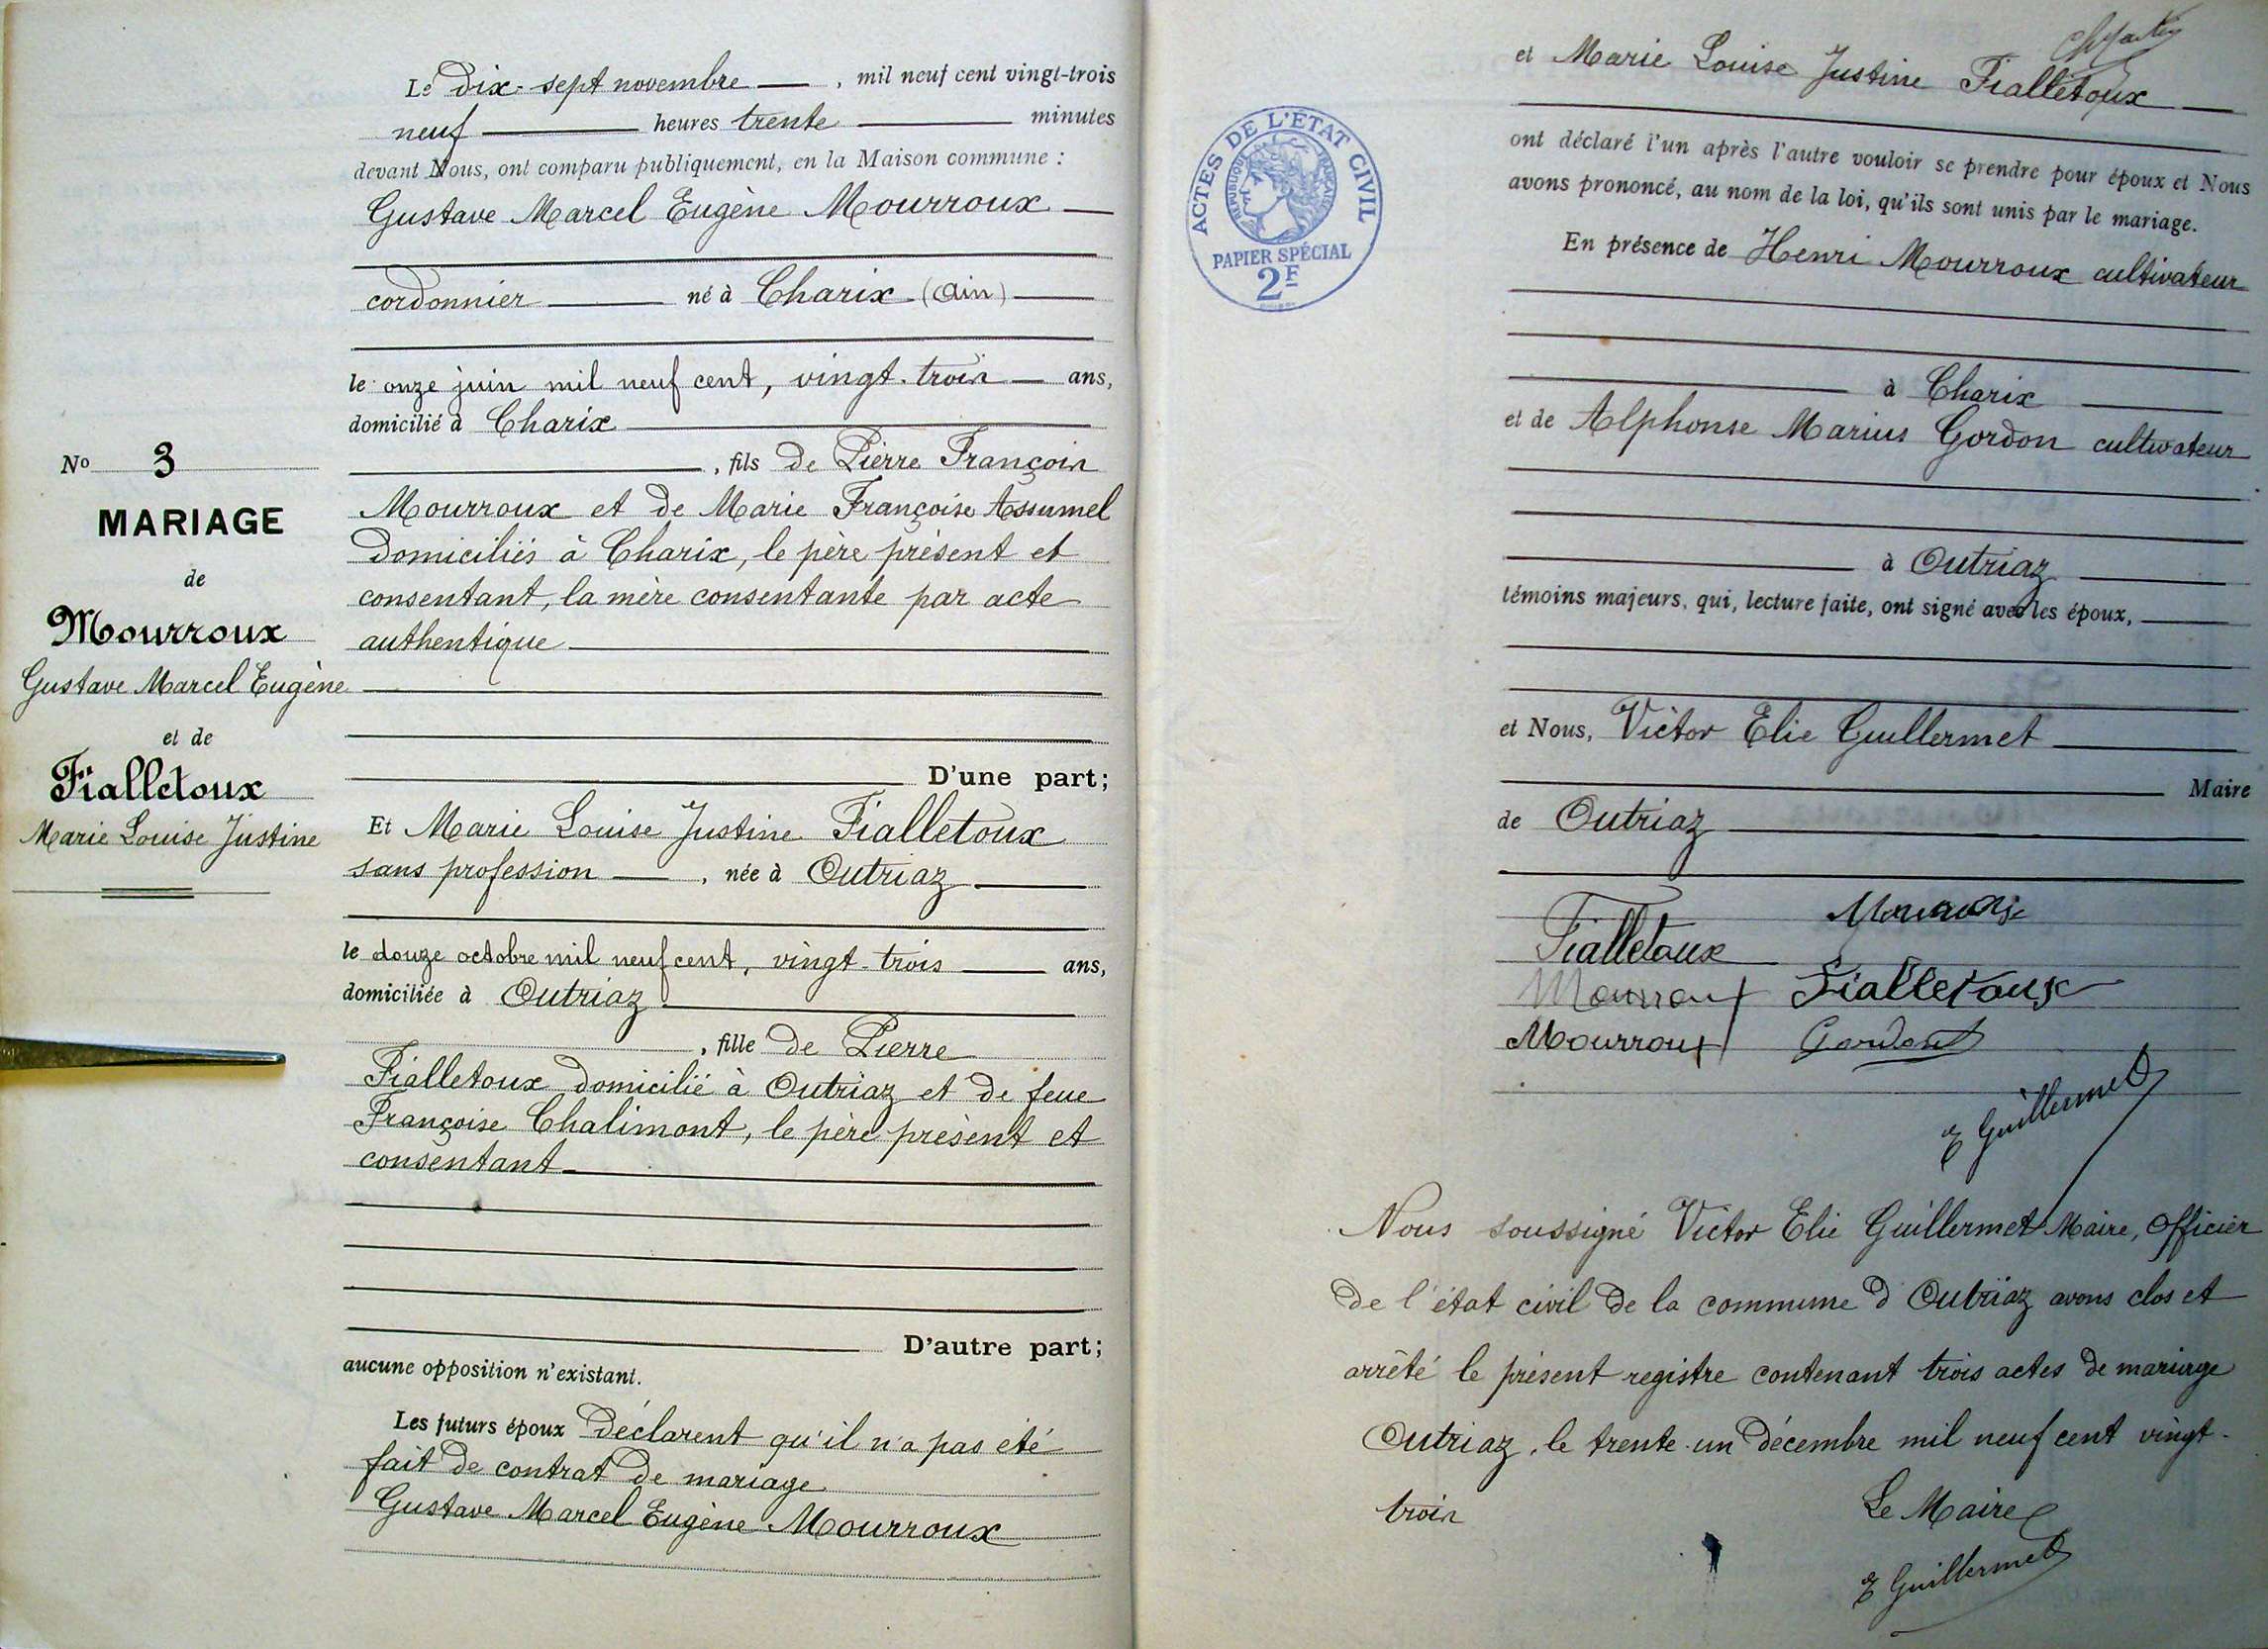 Le dix-sept novembre, mil neuf cent vingt-trois
neuf heures trente minutes
devant Nous, ont comparu publiquement, en la Maison commune :
Gustave Marcel Eugène Mourroux
cordonnier né à Charix (Ain)
le onze juin mil neuf cent, vingt-trois ans,
domicilié à Charix
, fils de Pierre François
Mourroux et de Marie Françoise Assumel
domiciliés à Charix, le père présent et
consentant, la mère consentante par acte
authentique
No 3
MARIAGE
de
Mourroux
Gustave Marcel Eugène
et de
Fialletoux
Marie Louise Justine
D'une part;
Et Marie Louise Justine Fialletoux
sans profession, née à Outriaz
le douze octobre mil neuf cent, vingt-trois ans,
domiciliée à Outriaz
, fille de Pierre
Fialletoux domicilié à Outriaz et de feue
Françoise Chalimont, le père présent et
consentant
D'autre part;
aucune opposition n'existant.
Les futurs époux déclarent qu'il n'a pas été
fait de contrat de mariage
Gustave Marcel Eugène Mourroux
et Marie Louise Justine Fialletoux
ont déclaré l'un après l'autre vouloir se prendre pour époux et Nous
avons prononcé, au nom de la loi, qu'ils sont unis par le mariage.
ACTES DE L'ÉTAT CIVIL
RÉPUBLIQUE FRANÇAISE
PAPIER SPÉCIAL
2F
En présence de Henri Mourroux cultivateur
à Charix
et de Alphonse Marius Gordon cultivateur
à Outriaz
témoins majeurs, qui, lecture faite, ont signé avec les époux,
et Nous, Victor Elie Guillermet
Maire
de Outriaz
Fialletoux Mourroux
Mourroux Fialletoux
Mourroux Gordon
E Guillermet
Nous soussigné Victor Elie Guillermet Maire, Officier
de l'état civil de la commune d'Outriaz avons clos et
arrêté le présent registre contenant trois actes de mariage
Outriaz, le trente-un décembre mil neuf cent vingt-
trois
Le Maire
E Guillermet